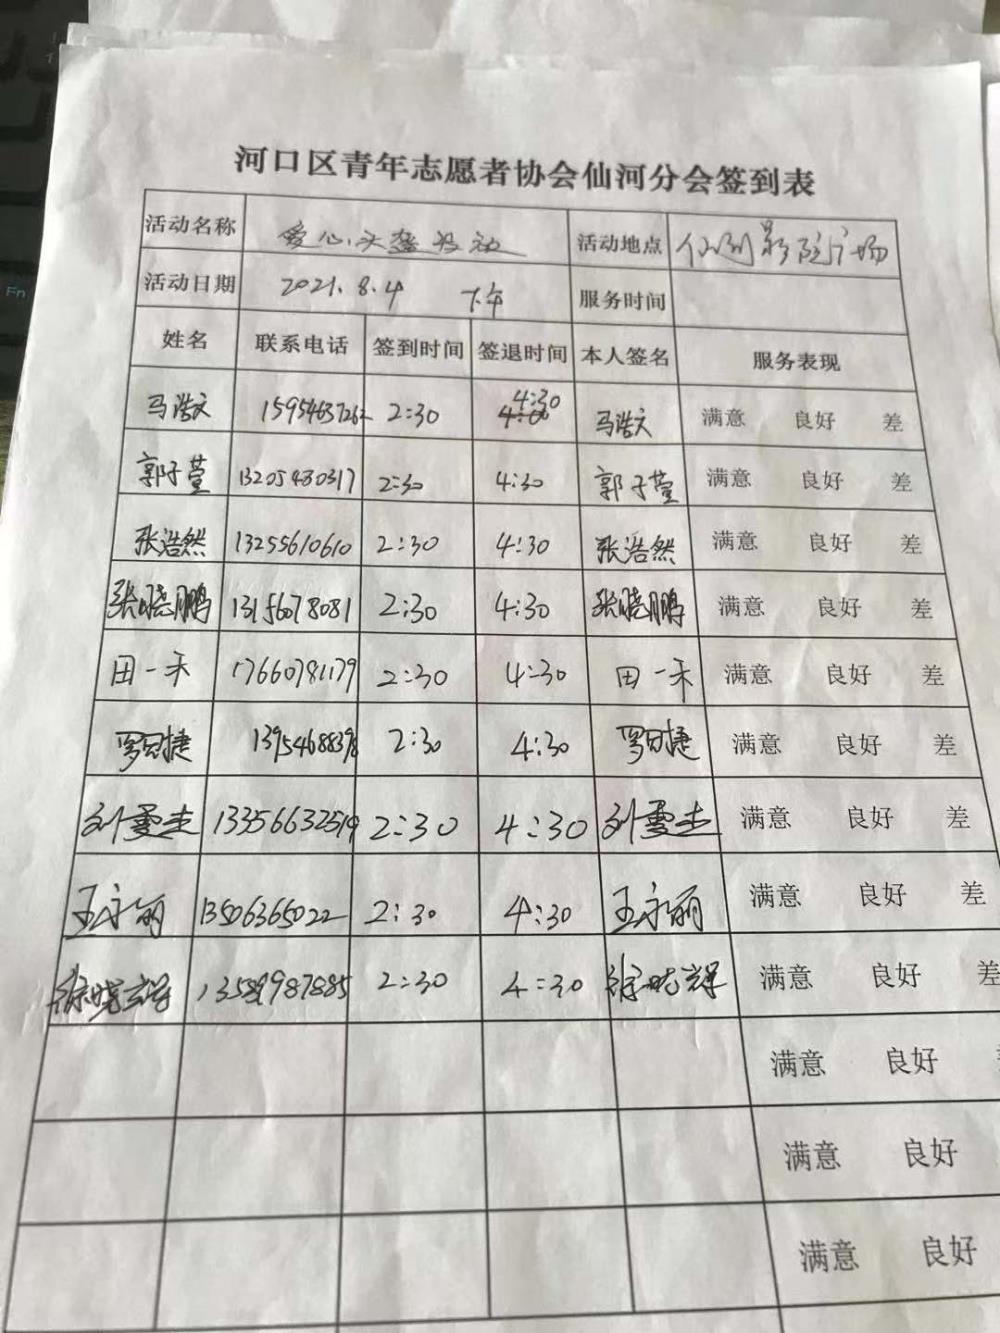 河口区青年志愿者协会仙河分会签到表
活动名称 爱心头盔 活动地点 仙河影院广场
活动日期 2021.8.4 下午 服务时间
姓名 联系电话 签到时间 签退时间 本人签名 服务表现
马浩文 15954637262 2:30 4:30 马浩文 满意 良好 差
郭子萱 13205480317 2:30 4:30 郭子萱 满意 良好 差
张浩然 13255610610 2:30 4:30 张浩然 满意 良好 差
张晓鹏 13156078081 2:30 4:30 张晓鹏 满意 良好 差
田一禾 17660781179 2:30 4:30 田一禾 满意 良好 差
13954688398 2:30 4:30 满意 良好 差
刘雯 13356632519 2:30 4:30 刘雯 满意 良好 差
王永丽 13506365022 2:30 4:30 王永丽 满意 良好 差
徐晓辉 2:30 4:30 徐晓辉 满意 良好 差
满意 良好
满意 良好
满意 良好